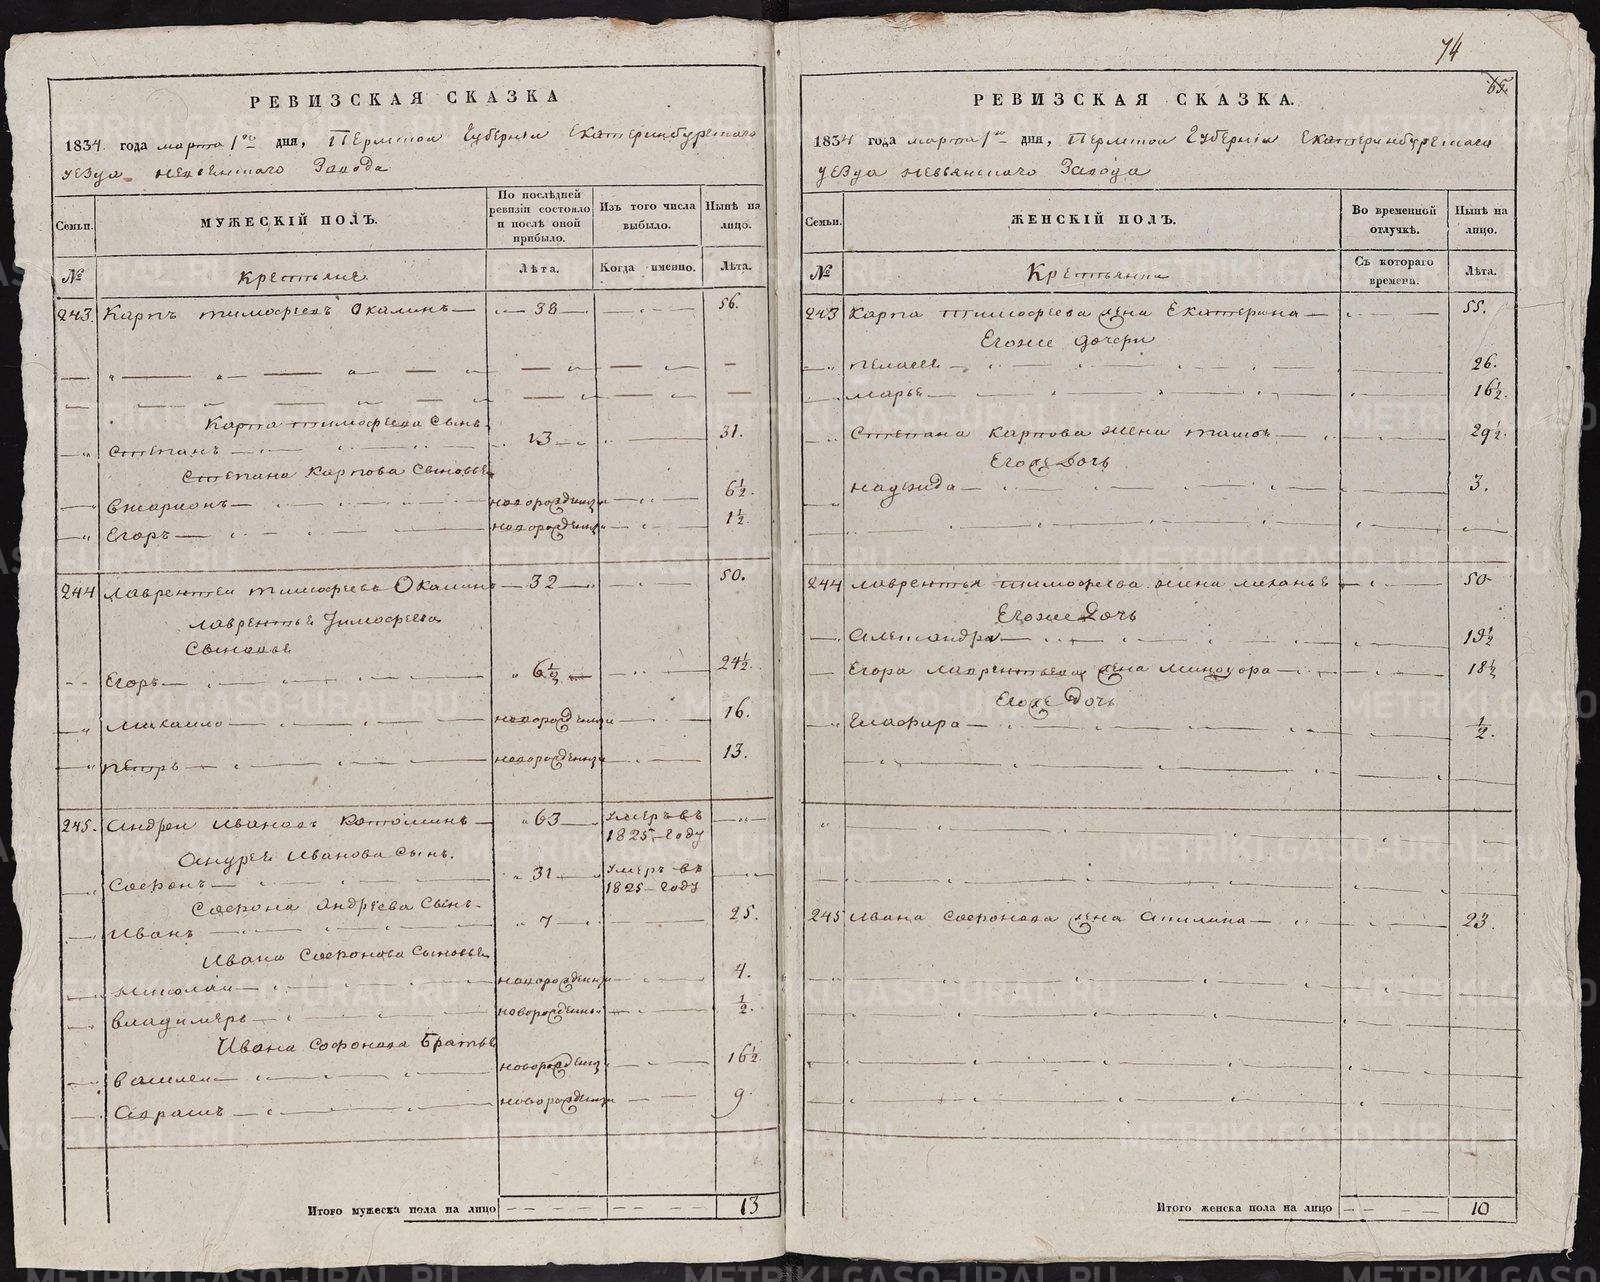 74
65.
РЕВИЗСКАЯ СКАЗКА
1834 года марта 1го дня, Пермской Губернiи Екатеринбургскаго
уезда невьянскаго Завода
Семьи.
МУЖЕСКIЙ ПОЛЪ.
По послѣдней ревизiи состояло и послѣ оной прибыло.
Изъ того числа выбыло.
Нынѣ на лицо.
№
Крестьяне
Лѣта.
Когда именно.
Лѣта.
243. Карпъ тимофеевъ Окалинъ — 38 — 56.
Карпа тимофеева Сынъ
Степанъ 13 31.
Степана Карпова Сыновья
новорожденный 6½.
Егоръ — новорожденный 1½.
244 Лаврентей тимофеевъ Окалинъ — 32 — 50.
лаврентья Тимофеева
Сыновья
Егоръ — 6½ 24½.
Михаило — новорожденный 16.
петръ — новорожденный 13.
245. Андрей Ивановъ — 63 умеръ въ 1825 году
Андрея Иванова Сынъ.
Софонъ — 31 умеръ въ 1825 году
Софона Андреева Сынъ
Иванъ 7 25.
Ивана Софонова Сыновья
николай — новорожденный 4.
владимеръ — новорожденный ½.
Ивана Софонова Братья
василей — новорожденный 16½
Абрамъ — новорожденный 9
Итого мужеска пола на лицо 13
РЕВИЗСКАЯ СКАЗКА.
1834 года марта 1го дня, Пермской Губернiи Екатеринбургскаго
уезда невьянскаго Завода
Семьи.
ЖЕНСКIЙ ПОЛЪ.
Во временной отлучкѣ.
Нынѣ на лицо.
№
Крестьянки
Съ котораго времени.
Лѣта.
243 Карпа тимофеева жена Екатерина — 55.
Егоже дочери
26.
Марья — 16½.
Степана Карпова жена 29½.
Егоже Дочь
надежда — 3.
244 лаврентья тимофеева жена маланья 50
Егоже Дочь
Александра — 19½
Егора лаврентьева жена минодора — 18½
Егоже Дочь
Глафира — ½.
245 Ивана Софонова жена Акилина — 23.
Итого женска пола на лицо 10
METRIKI.GASO-URAL.RU